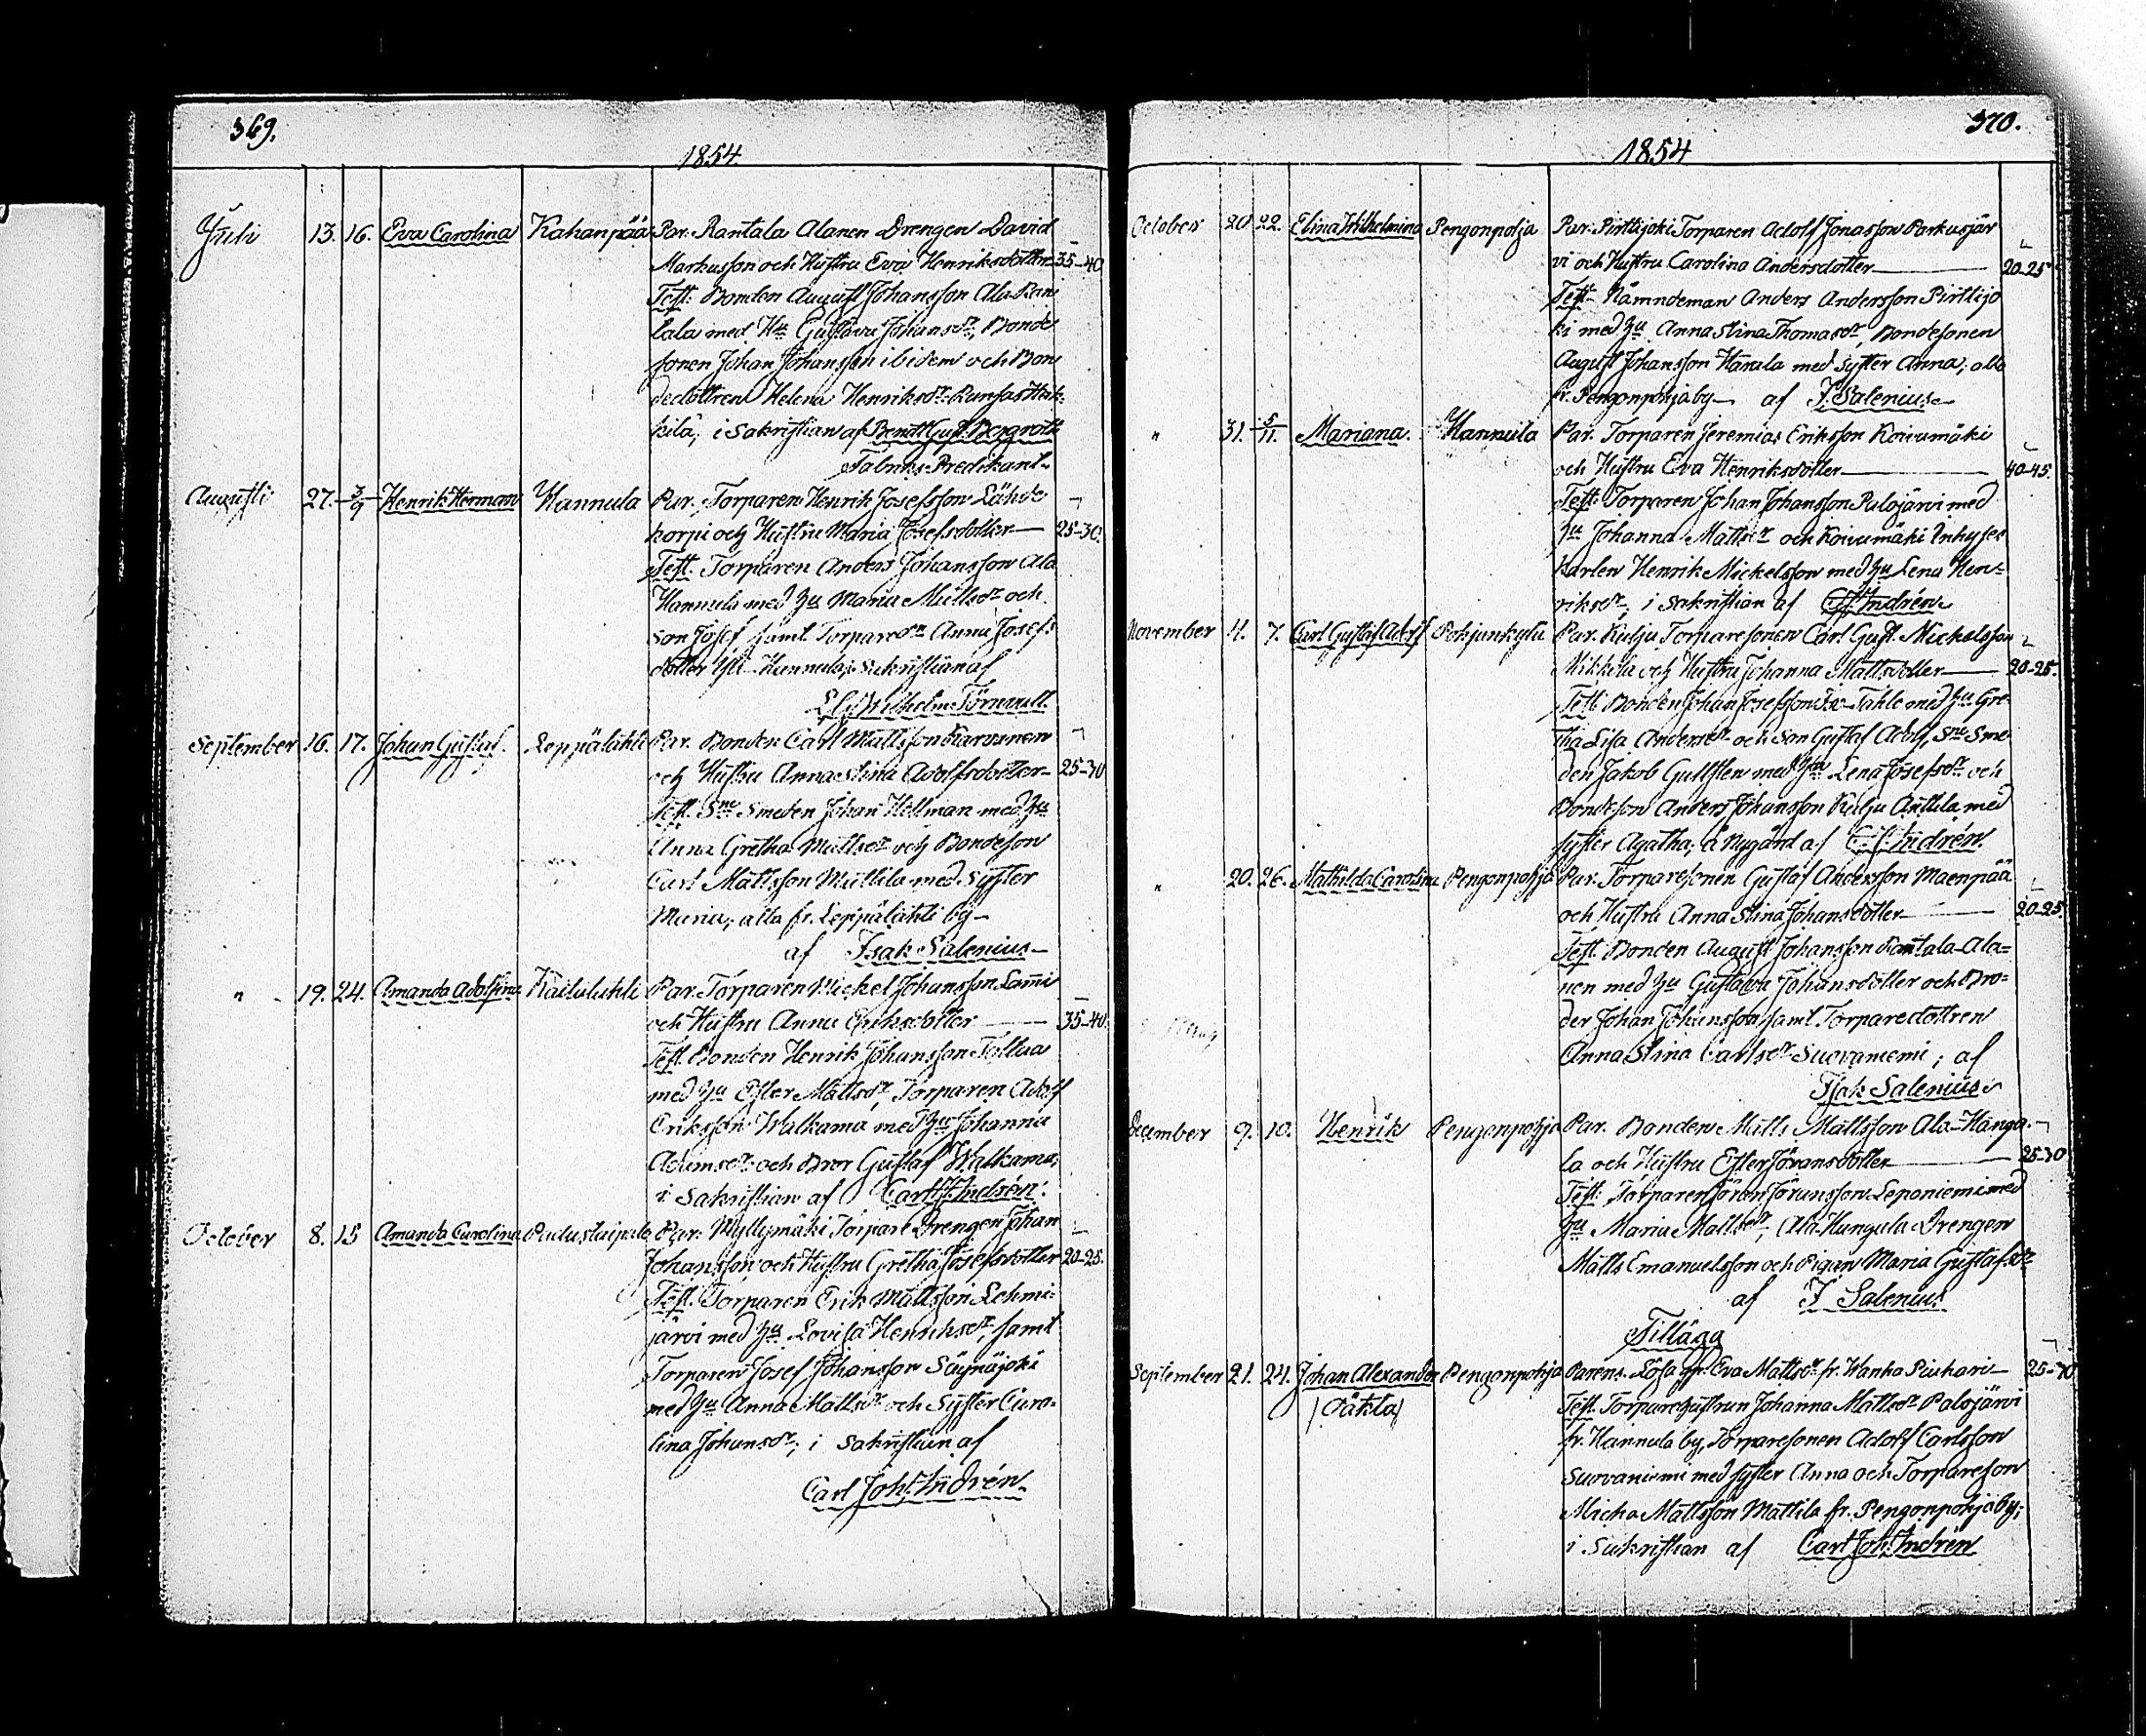 369.
1854
Juli 13. 16. Eva Carolina Kahanpää Par. Rantala Alanen Drengen David
Markusson och Hustru Eva Henriksdotter 35-40
Test: Bonden August Johansson Ala Ran
tala med Hu Gustava Johansdr, Bonde
sonen Johan Johansson ibidem och Bon
dedottren Helena Henriksdr Runsas Heik-
kilä; i Sakristian af Bendt Gust. Bergroth
Fabriks-Predikant-
Augusti 27. 3/9 Henrik Herman Hannula Par. Torparen Henrik Josefsson Lähde
korpi och Hustru Maria Josefsdotter 25-30.
Test. Torparen Anders Johansson Ala
Hannula med hu Maria Mattsdr och
son Josef samt Torparedr Anna Josefs
dotter Yli-Hannula; i sakristian af
Wilhelm Törnvall.
September 16. 17. Johan Gustaf. Leppälahti Par. Bonden Carl Mattsson Karvonen
och Hustru Anna Stina Adolfsdotter- 25-30
Test. Sne Smeden Johan Hellman med hu
Anna Gretha Mattsdr och Bondeson
Carl Mattsson Mattila med Syster
Maria; alla fr. Leppälahti by-
af Isak Salenius-
" 19. 24. Amanda Adolfina Par. Torparen Mickel Johansson Lammi
och Hustru Anna Eriksdotter 35-40.
Test. Bonden Henrik Johansson
med hu Ester Mattsdr, Torparen Adolf
Eriksson Walkama med hu Johanna
Adamsdr och Bror Gustaf Walkama;
i Sakristian af Carl J. Indrén.
October 8. 15 Amanda Carolina Padustaipale Par. Myllymäki Torpare Drengen Johan
Johansson och Hustru Gretha Josefsdotter 20-25.
Test. Torparen Erik Mattsson Lehmi-
järvi med hu Lovisa Henriksdr, samt
Torparen Josef Johansson Säynäjoki
med hu Anna Mattsdr och Syster Caro-
lina Johansdr; i Sakristian af
Carl Joh. Indrén.
370.
1854
October 20 22. Elina Wilhelmina Pengonpohja Par. Pirttijoki Torparen Adolf Jonasson Parkusjär
vi och Hustru Carolina Andersdotter 20-25
Test- Nämndeman Anders Andersson Pirttijo
ki med hu Anna Stina Thomasdr, Bondesonen
August Johansson Harala med Syster Anna; alla
fr. Pengonpohja by- af J. Salenius-
" 31. 5/11. Mariana. Hannula Par. Torparen Jeremias Eriksson Koivumäki
och Hustru Eva Henriksdotter 40-45.
Test: Torparen Johan Johansson Palojärvi med
hu Johanna Mattsdr och Koivumäki Inhyses
karlen Henrik Mickelsson med hu Lena Hen-
riksdr; i Sakristian af C. J. Indrén.
November 4. 7. Carl Gustaf Adolf Pohjankylä Par. Kulju Torparesonen Carl Gust. Mickelsson
Mikkola och Hustru Johanna Mattsdotter 20-25.
Test: Bonden Johan Josefsson Tahlo med hu Gre
tha Lisa Andersdr och Son Gustaf Adolf, Sne Sme
den Jakob Gullsten med hu Lena Josefsdr och
Bondeson Anders Johansson Kulju Anttila med
syster Agatha; å Nygård af C. J. Indrén.
" 20. 26. Mathilda Carolina Pengonpohja Par. Torparesonen Gustaf Andersson Maenpää
och Hustru Anna Stina Johansdotter 20-25.
Test. Bonden August Johansson Rantala Ala=
nen med hu Gustava Johansdotter och Bro-
der Johan Johansson samt Torparedottren
Anna Stina Carlsdr Suovaniemi; af
Isak Salenius
December 9. 10. Henrik Pengonpohja Par. Bonden Matts Mattsson Ala-Hanga-
la och Hustru Ester Göransdotter 25-30
Test: Torparen Göran Göransson Leponiemi med
hu Maria Mattsdr, Ala Hangala Drengen
Matts Emanuelsson och Pigan Maria Gustafsdr
af J Salenius
Tillägg
September 21. 24. Johan Alexander Pengonpohja Parens. Lösa qp. Eva Mattsdr fr. Wanha Piukari- 25-30
(oäkta) Test. Torparehustrun Johanna Mattsdr Palojärvi
fr. Hannula by, Torparesonen Adolf Carlsson
Suovaniemi med syster Anna och Torpareson
Micha Mattsson Mattila fr. Pengonpohja by;
i Sakristian af Carl Joh. Indrén